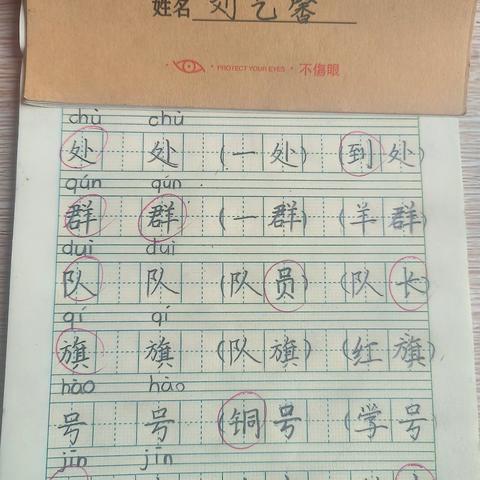 姓名 刘艺馨
PROTECT YOUR EYES · 不傷眼
chù chù
处 处 (一处) (到处)
qún qún
群 群 (一群) (羊群)
duì duì
队 队 (队员) (队长)
qí qí
旗 旗 (队旗) (红旗)
hào hào
号 号 (铜号) (学号)
jīn jīn